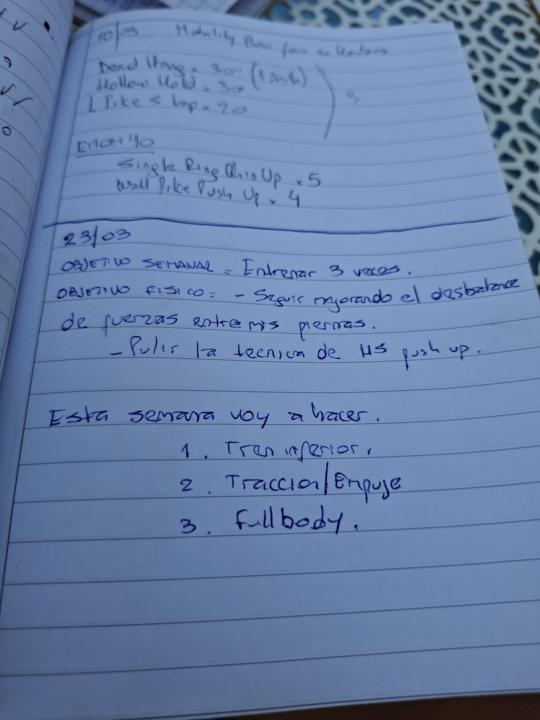 10/03 Mobility Flow
Dead Hang = 30" (1 Min)
Hollow Hold = 30
L Pike s Up = 20
3
EMOM 10
Single Ring Chin Up = 5
Wall Pike Push Up = 4
23/03
OBJETIVO SEMANAL = Entrenar 3 veces.
OBJETIVO FISICO = - Seguir mejorando el desbalance
de fuerzas entre mis piernas.
- Pulir la tecnica de HS push up.
Esta semana voy a hacer.
1. Tren inferior.
2. Traccion/Empuje
3. Fullbody.